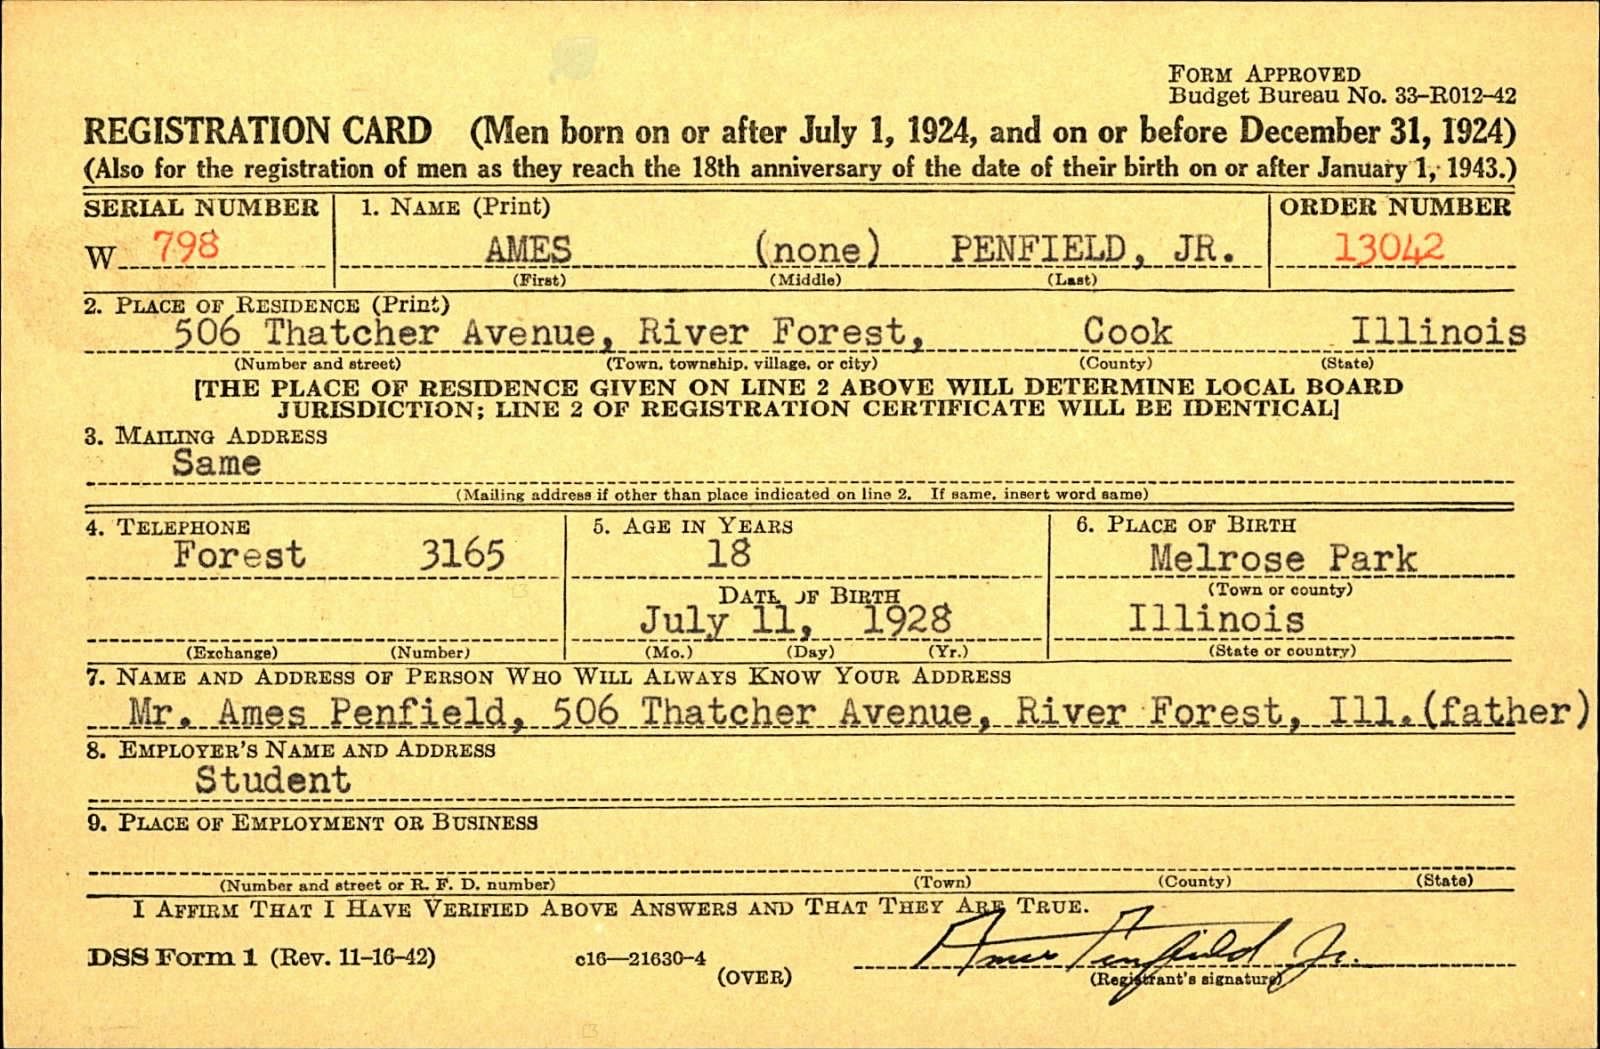 FORM APPROVED
Budget Bureau No. 33–R012–42
REGISTRATION CARD (Men born on or after July 1, 1924, and on or before December 31, 1924)
(Also for the registration of men as they reach the 18th anniversary of the date of their birth on or after January 1, 1943.)
SERIAL NUMBER 1. NAME (Print) ORDER NUMBER
W 798 AMES (none) PENFIELD, JR. 13042
(First) (Middle) (Last)
2. PLACE OF RESIDENCE (Print)
506 Thatcher Avenue, River Forest, Cook Illinois
(Number and street) (Town, township, village, or city) (County) (State)
[THE PLACE OF RESIDENCE GIVEN ON LINE 2 ABOVE WILL DETERMINE LOCAL BOARD
JURISDICTION; LINE 2 OF REGISTRATION CERTIFICATE WILL BE IDENTICAL]
3. MAILING ADDRESS
Same
(Mailing address if other than place indicated on line 2. If same, insert word same)
4. TELEPHONE 5. AGE IN YEARS 6. PLACE OF BIRTH
Forest 3165 18 Melrose Park
DATE OF BIRTH (Town or county)
July 11, 1928 Illinois
(Exchange) (Number) (Mo.) (Day) (Yr.) (State or country)
7. NAME AND ADDRESS OF PERSON WHO WILL ALWAYS KNOW YOUR ADDRESS
Mr. Ames Penfield, 506 Thatcher Avenue, River Forest, Ill. (father)
8. EMPLOYER'S NAME AND ADDRESS
Student
9. PLACE OF EMPLOYMENT OR BUSINESS
(Number and street or R. F. D. number) (Town) (County) (State)
I AFFIRM THAT I HAVE VERIFIED ABOVE ANSWERS AND THAT THEY ARE TRUE.
Ames Penfield Jr.
DSS Form 1 (Rev. 11–16–42) c16—21630-4
(OVER) (Registrant's signature)